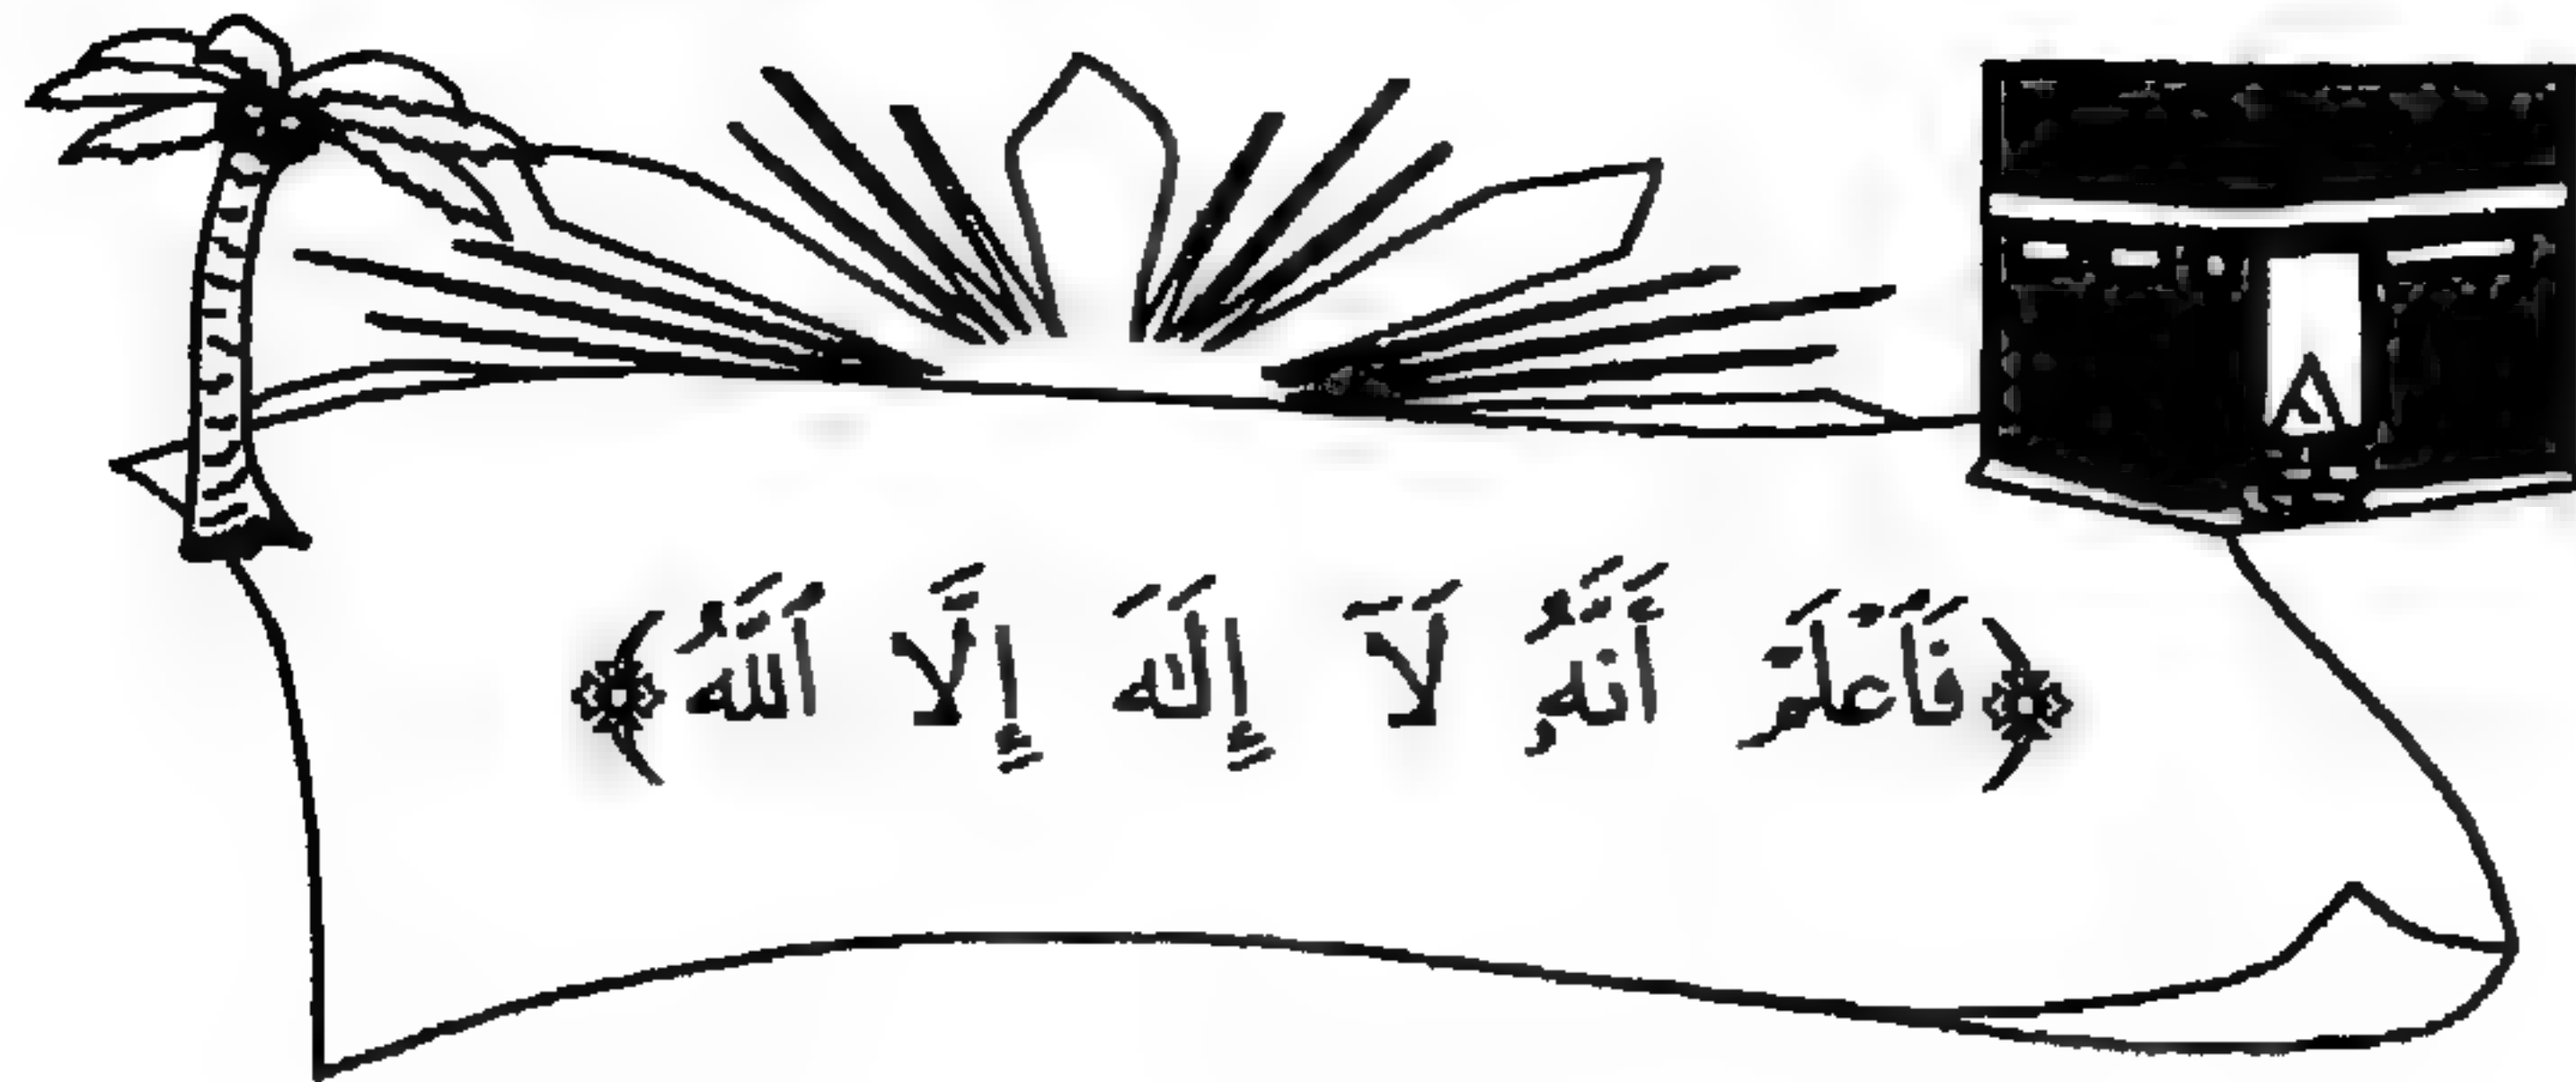 ﴿فَٱعْلَمْ أَنَّهُۥ لَآ إِلَٰهَ إِلَّا ٱللَّهُ﴾